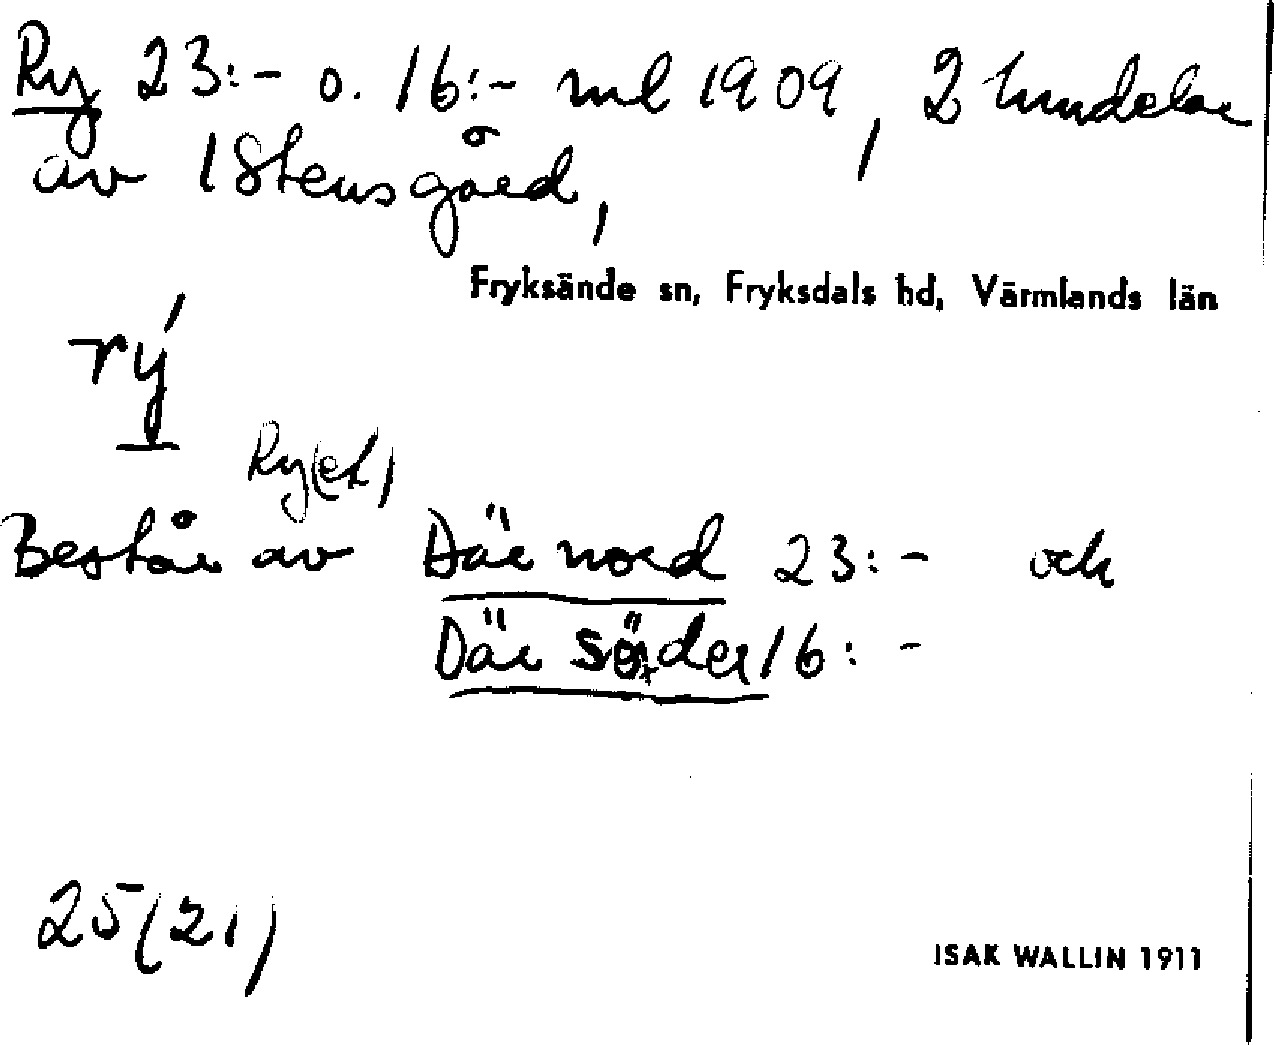 Ry 23:- o. 16:- ml 1909, 2 hmdelar
av 1 Stensgård,
Fryksände sn, Fryksdals hd, Värmlands län
rý
Ry(et)
Består av Där nord 23:- och
Där söder 16:-
25(21)
ISAK WALLIN 1911